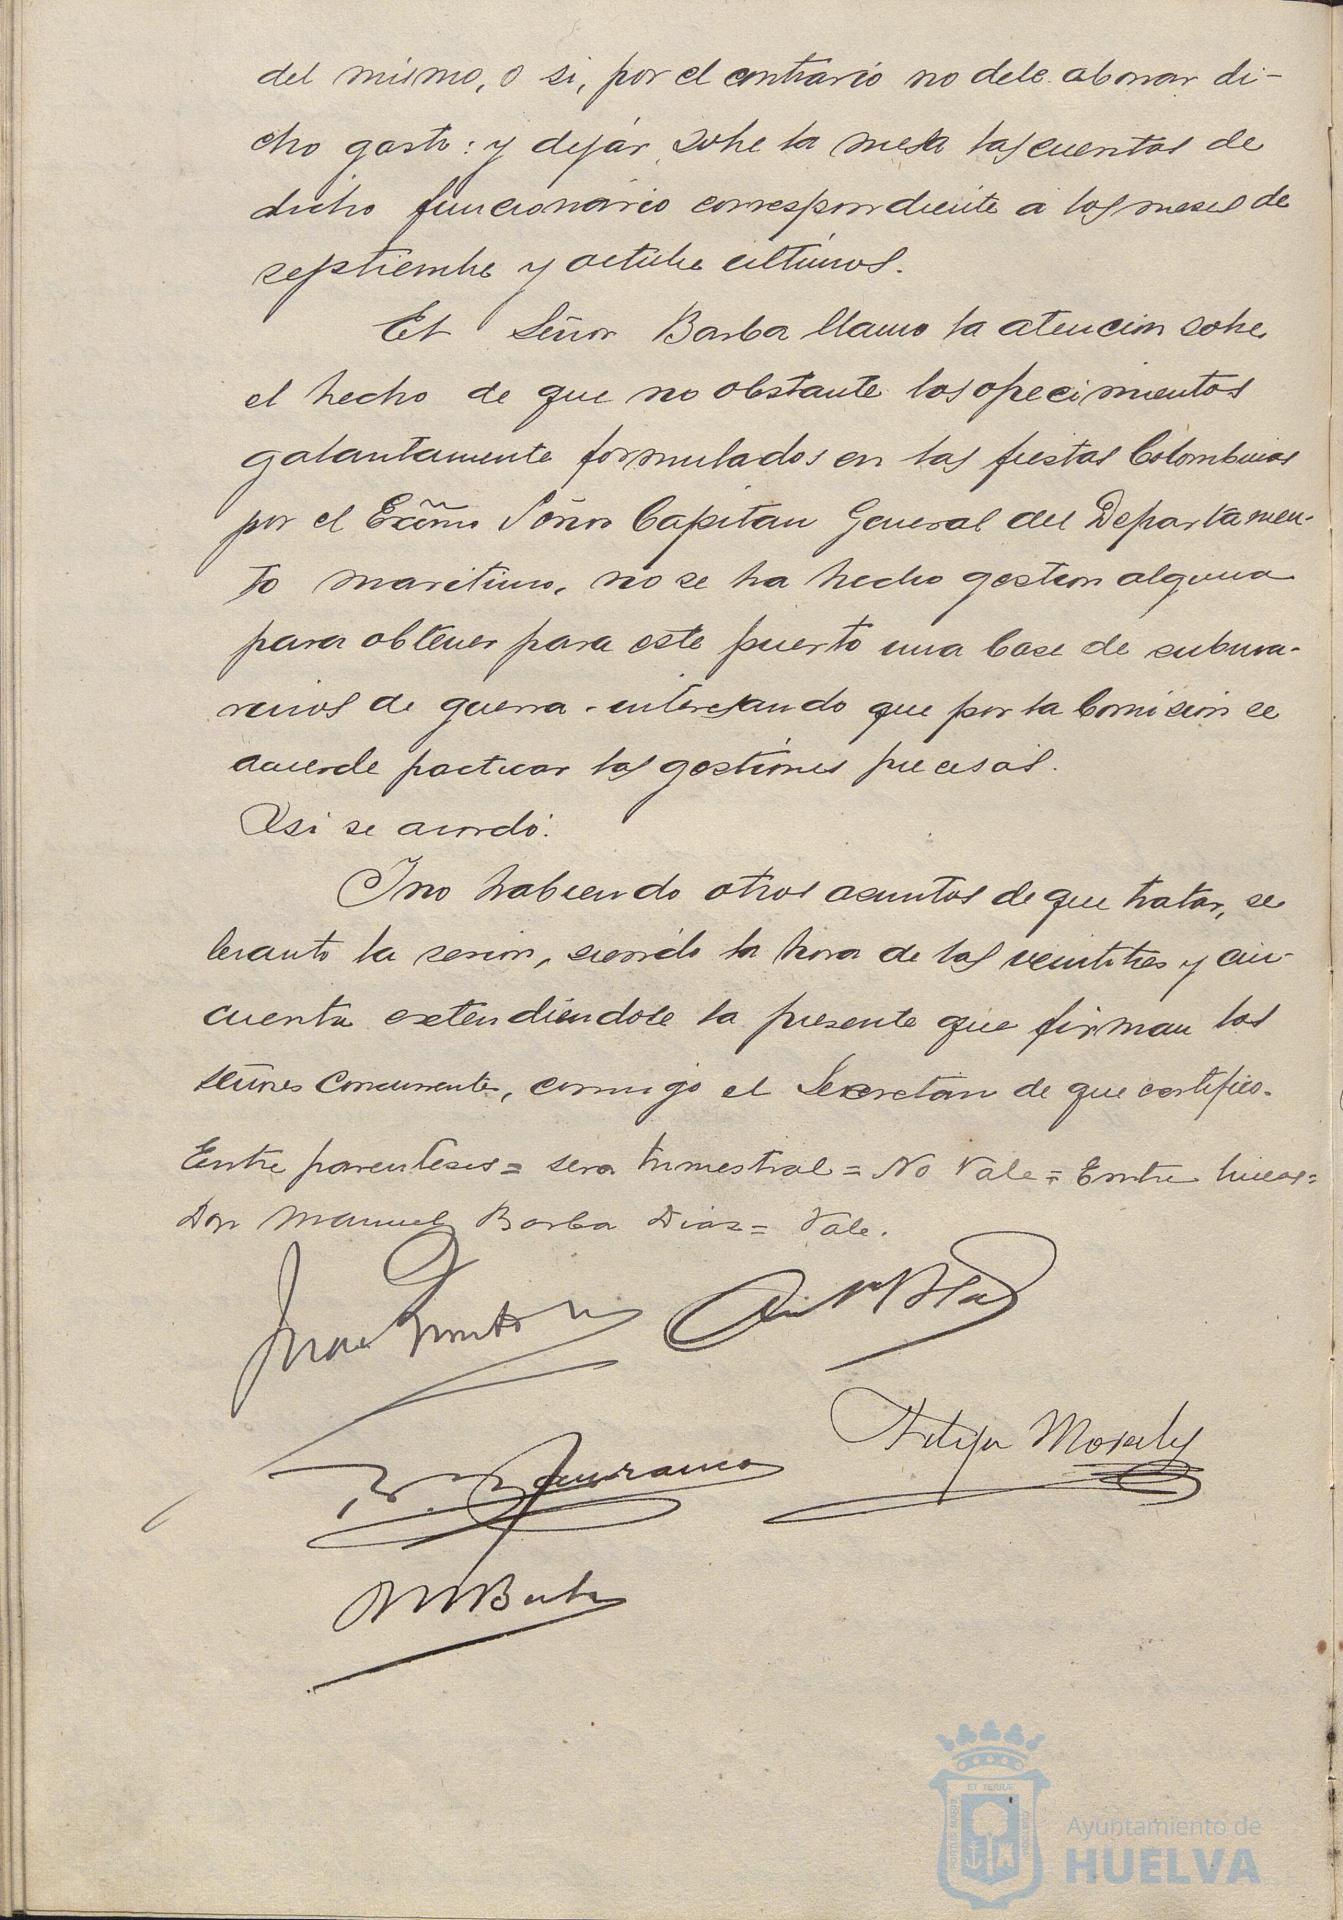 del mismo, o si, por el contrario no debe abonar di-
cho gasto: y dejar sobre la mesa las cuentas de
dicho funcionario correspondiente a los meses de
septiembre y octubre últimos.
El Señor Barba llamo la atencion sobre
el hecho de que no obstante los ofrecimientos
galantamente formulados en las fiestas Colombinas
por el Excmo Señor Capitan General del Departamen-
to maritimo, no se ha hecho gestion alguna
para obtener para este puerto una base de subma-
rinos de guerra - interesando que por la Comision se
acuerde practicar las gestiones precisas.
Asi se acordó.
Y no habiendo otros asuntos de que tratar, se
levanto la sesion, siendo la hora de las veintitres y cin-
cuenta extendiéndose la presente que firman los
señores concurrentes, conmigo el Secretario de que certifico.
Entre parentesis = sera trimestral = No Vale = Entre lineas =
Don Manuel Barba Diaz = Vale.
Felipe Morales
M Barba
ET TERRÆ
PORTUS MARIS
CUSTODIA
Ayuntamiento de
HUELVA